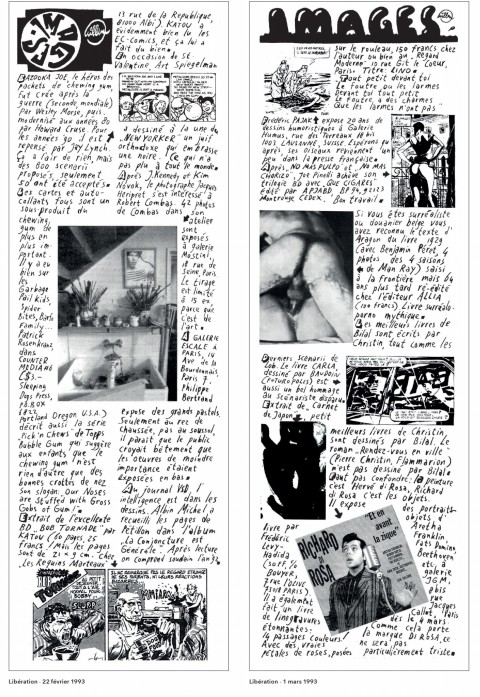 IMAGES
Willem
BAZOOKA JOE, le héros des
pockets de chewing gum
fut créé après la
guerre (seconde mondiale)
Par Wesley Morse, puis
modernisé aux années 80
par Howard Cruse. Pour
les années 90 il est
repensé par Jay Lynch.
a fait de rien mais
800 scénarii
proposés, seulement
50 ont été acceptés.
Les cartes et auto-
collants Topps sont un
sous-produit du
chewing
gum de
plus en
plus im-
portant.
Il y a eu
bien sûr
les
Garbage
Pail Kids,
Spider
Bites, Barfo
Family...
Patrick
Rosenkranz
dans
COUNTER
MEDIA N6
($3.-
Sleeping
Dogs Press,
P.O. BOX
1822
Portland Oregon U.S.A.)
décrit aussi la série
"Pick'n Chews" de Topps
Bubble Gum qui suggère
aux enfants que le
chewing gum n'est
rien d'autre que des
bonnes crottes de nez
Son slogan: Our Noses
are Stuffed with Gross
Gobs of Gum!
Extrait de l'excellente
BD "BOB TORNADE" par
KATOU (60 pages, 25
francs (mais les pages
sont de 21 x 7 cm. Chez
Les Requins Marteaux
13 rue de la République
81000 Albi). KATOU a
évidemment bien lu les
EC-Comics, et ça lui a
fait du bien.
En occasion de St
Valentine, Art Spiegelman
a dessiné à la une du
"NEW YORKER" un juif
orthodoxe qui embrasse
une noire. Ce qui n'a
pas plu à tout le monde.
Après J. Kennedy et Kim
Novak, le photographe Jacques
Hériplet s'est intéressé à
Robert Combas. 42 photos
de Combas dans son
atelier
sont
exposés
à galerie
Mostini,
18 rue de
Seine, Paris.
Le tirage
est limité
à 15 ex.
parce que
c'est de
l'art.
A GALERIE
ESCALE à
PARIS, 14
Ave de la
Bourdonnais,
Paris 7.
Philippe
Bertrand
expose des grands pastels.
Seulement au rec de
chaussée, pas au sous-sol,
il paraît que le public
croyait bêtement que
les oeuvres de moindre
importance étaient
exposées en bas.
Au journal VSD, l'
intelligence est dans les
dessins. Albin Michel a
recueilli les pages de
Pétillon dans l'album
"La Conjoncture est
Générale". Après lecture
on comprend soudain
TORNADE
Libération - 22 février 1993
IMAGES
Willem
sur le rouleau, 150 francs chez
fautour ou bien au "Regard
Moderne" 10 rue Gît le Coeur,
Paris. Titre: LINO.
Tout petit devant toi
Le foutre ou les larmes
Devant toi tout petit
Le foutre a des charmes
Que les larmes n'ont pas
Frédéric PAJAK expose 20 ans de
dessins humoristiques à Galerie
Humus, rue des Terreaux 18 bis
1003 LAUSANNE, SUISSE. Espérons qu'
après, ses oiseaux reviennent un
peu dans la presse française.
Après "NO MAS PULPO" et "NO MAS
CHORIZO" Joe Pinelli achève son
trilogie BD avec "QUE CIGARES"
édité par APJABD, BP 94, 92123
Montrouge CEDEX. Bon travail.
Si vous êtes surréaliste
ou douanier belge vous
avez reconnu le texte d'
Aragon du livre 1929
(avec Benjamin Péret, 4
photos des 4 saisons
de Man Ray) saisi
à la frontière mais 64
ans plus tard ré-édité
chez l'éditeur ALLIA
(100 francs) Livre surréalo-
porno mythique.
Les meilleurs livres de
Bilal sont écrits par
Christin, tout comme les
Dernier scénario de
Lob. Le livre CARLA,
dessiné par BAUDOIN
(FUTUROPOLIS) est
aussi un bel hommage
au scénariste disparu
Extrait de "Carnet
de Japon" petit
meilleurs livres de Christin,
sont dessinés par Bilal. Le
roman "Rendez-vous en ville"
(Pierre Christin, Flammarion)
n'est pas dessiné par Bilal.
Faut pas confondre: la peinture
c'est Hervé di Rosa, Richard
di Rosa c'est les objets.
Il expose
des portraits-
objets d'
Aretha
Franklin
Fats Domino
Beethoven,
etc. à
galerie
JGM,
8 bis
rue
Jacques
Callot, Paris
dès le 4 mars.
Comme cela porte
la marque DI ROSA, ce
ne sera pas
particulièrement triste.
livre par
Frédéric
Levy-
Hadida
BOUYER,
Il a également
fait un livre
de linogravures
étonnantes:
14 passages couleurs!
Avec des vraies
pétales de roses, posées
RICHARD
DI ROSA
"Et en
avant
la zique"
Libération - 1 mars 1993